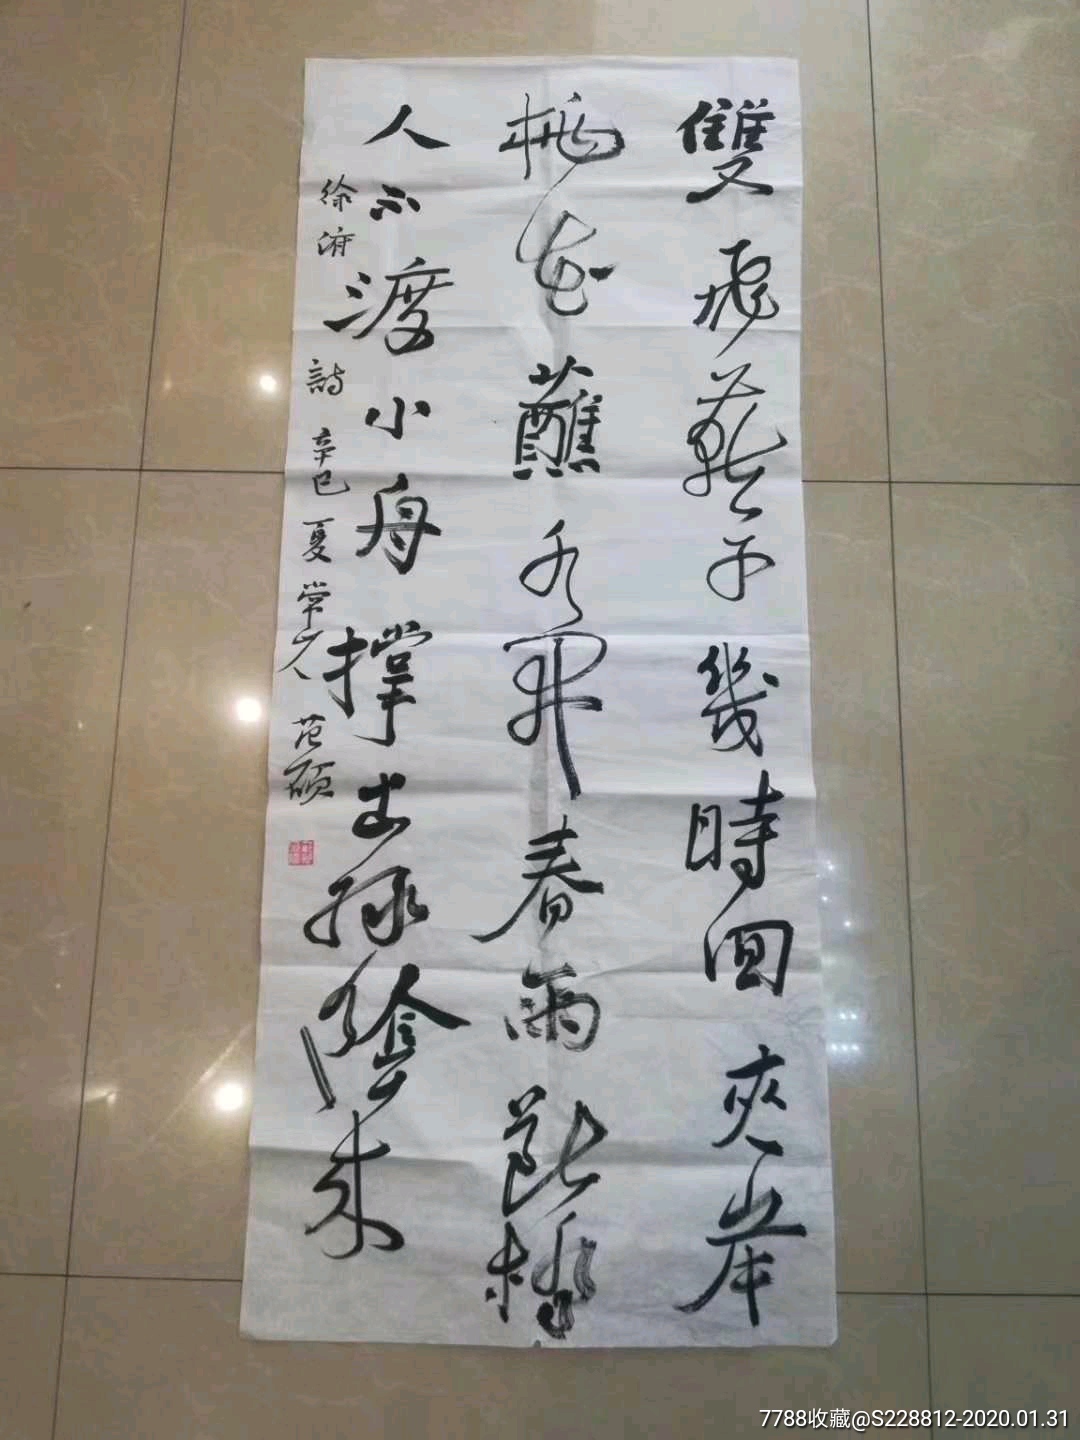 雙飛燕子幾時回夾岸
桃花蘸水開春雨斷橋
人不渡小舟撐出綠陰來
徐俯詩辛巳夏常人范碩
7788收藏@S228812-2020.01.31